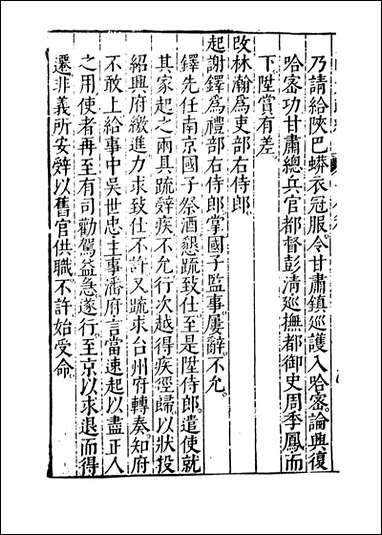 乃請給陝巴蟒衣冠服令甘肅鎮巡護入哈密論興復
哈密功甘肅總兵官都督彭清巡撫都御史周季鳳而
下陞賞有差
改林瀚爲吏部右侍郎
起謝鐸爲禮部右侍郎掌國子監事屢辭不允
鐸先任南京國子祭酒懇疏致仕至是陞侍郎遣使就
其家起之兩具疏辭疾不允行次越得疾徑歸以狀投
紹興府繳進力求致仕不許又疏求台州府轉奏知府
不敢上給事中吳世忠主事潘府言當速起以盡正人
之用使者再至有司勸駕益急遂行至京以求退而得
遷非義所安辭以舊官供職不許始受命